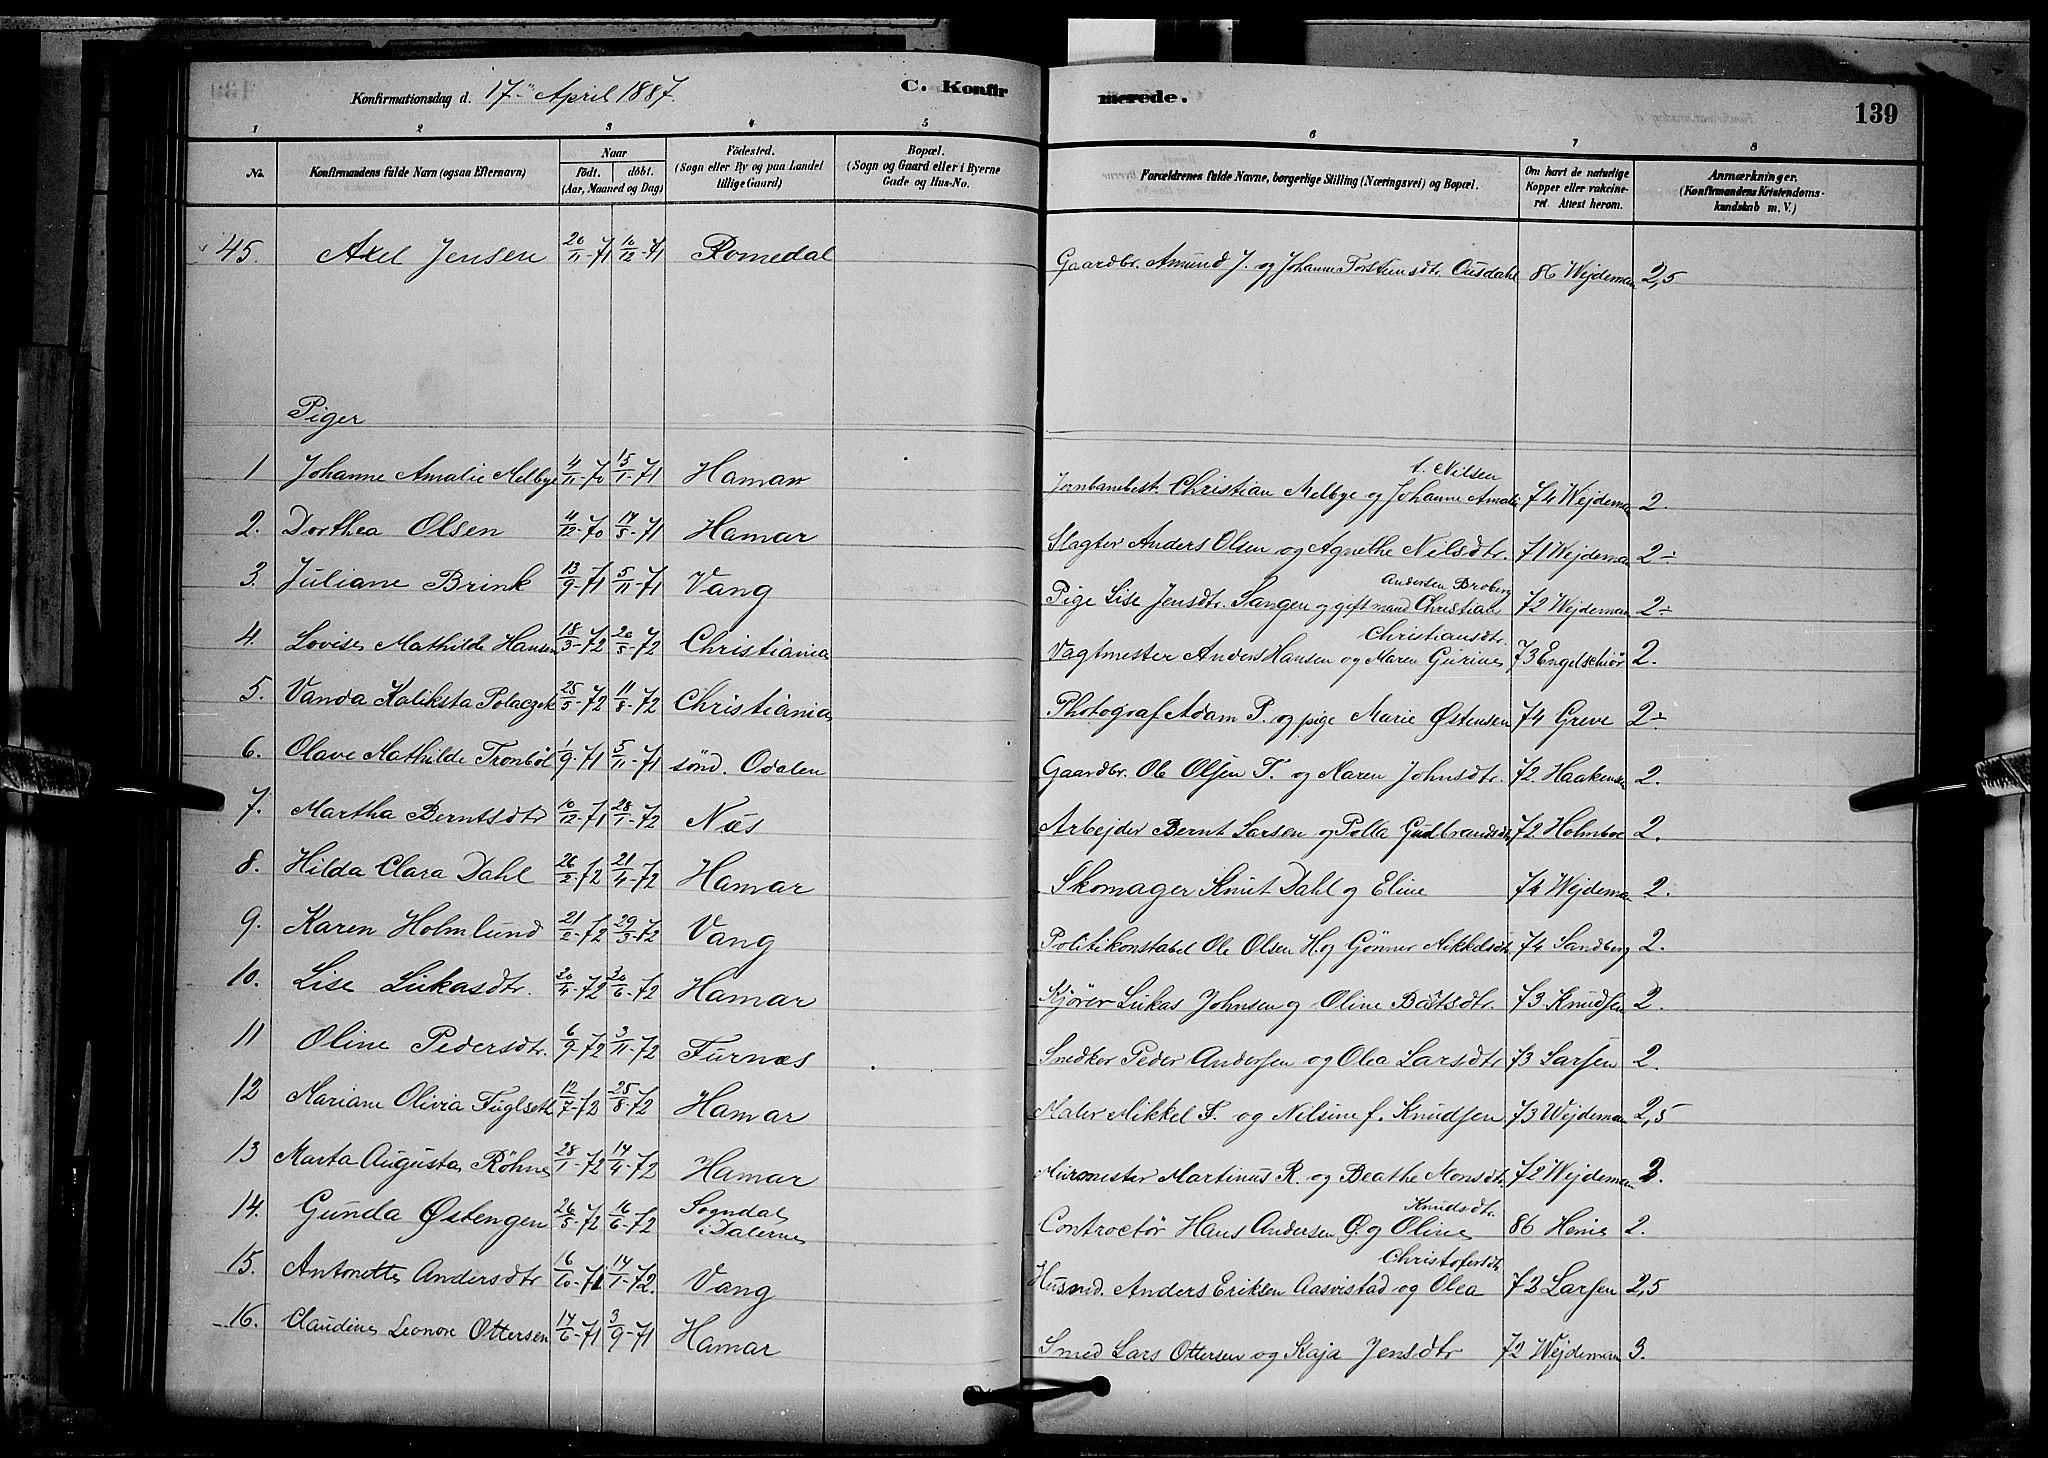 Konfirmationsdag d. 17. April 1887. C. Konfirmerede. 139
1 2 3 4 5 6 7 8
No. Konfirmandens fulde Navn (ogsaa Efternavn) Naar født. døbt. (Aar, Maaned og Dag) Fødested. (Sogn eller By og paa Landet tillige Gaard) Bopæl. (Sogn og Gaard eller i Byerne Gade og Hus-No. Forældrenes fulde Navne, borgerlige Stilling (Næringsvei) og Bopæl. Om havt de naturlige Kopper eller vakcineret. Attest herom. Anmærkninger. (Konfirmandens Kristendomskundskab m. V.)
45. Axel Jensen 20/11-71 10/12-71 Romedal Gaardbr. Amund J. og Johanne Torstensdtr. Ousdahl 86 Wejdeman 2,5
Piger
1 Johanne Amalie Melbye 4/11-70 15/1-71 Hamar Jernbanebest. Christian Melbye og Johanne Amalie f. Nilsen 74 Wejdeman 2.
2. Dorthea Olsen 4/12-70 14/5-71 Hamar Slagter Anders Olsen og Agnethe Nilsdtr. 71 Wejdeman 2÷
3. Juliane Brink 13/9-71 5/11-71 Vang Pige Lise Jensdtr. Sangen og gift mand Christian Andersen Broberg 72 Wejdeman 2÷
4. Lovise Mathilde Hansen 18/3-72 20/5-72 Christiania Vagtmester Anders Hansen og Maren Gurine Christiansdtr. 73 Engelschiør 2.
5. Vanda Kaliksta Polaczek 25/5-72 11/8-72 Christiania Photograf Adam P. og pige Marie Østensen 74 Greve 2÷
6. Olave Mathilde Tronbøl 1/9-71 5/11-71 sønd. Odalen Gaardbr. Ole Olsen T. og Maren Johnsdtr. 72 Haakensen 2.
7. Martha Berntsdtr 10/12-71 28/1-72 Næs Arbejder Bernt Larsen og Polla Gudbrandsdtr 72 Holmboe 2.
8. Hilda Clara Dahl 26/2-72 21/4-72 Hamar Skomager Knut Dahl og Eline 74 Wejdeman 2.
9. Karen Holmlund 21/2-72 29/3-72 Vang Politikonstabel Ole Olsen H. og Gønner Mikkelsdtr 74 Sandberg 2.
10. Lise Lukasdtr. 20/4-72 30/6-72 Hamar Kjører Lukas Johnsen og Oline 73 Knudsen 2.
11 Oline Pedersdtr. 6/9-72 3/11-72 Furnæs Snedker Peder Andersen og Olea Larsdtr 73 Larsen 2.
12 Mariane Olivia Fuglseth 12/7-72 25/8-72 Hamar Maler Mikkel F. og Nilsine f. Knudsen 73 Wejdeman 2,5
13 Marta Augusta Röhne 28/1-72 14/4-72 Hamar Murmester Martinus R. og Beathe Monsdtr. 72 Wejdeman 3.
14. Gunda Østengen 26/5-72 16/6-72 Sogndal i Dalerne Contractør Hans Andersen Ø. og Oline Knudsdtr. 86 Henie 2.
15. Antonette Andersdtr 6/10-71 14/1-72. Vang Husmd. Anders Eriksen Aasvistad og Olea Christofersdtr 72 Larsen 2,5
16. Claudine Leonore Ottersen 14/6-71 3/9-71 Hamar Smed Lars Ottersen og Kaja Jensdtr 72 Wejdeman 3.